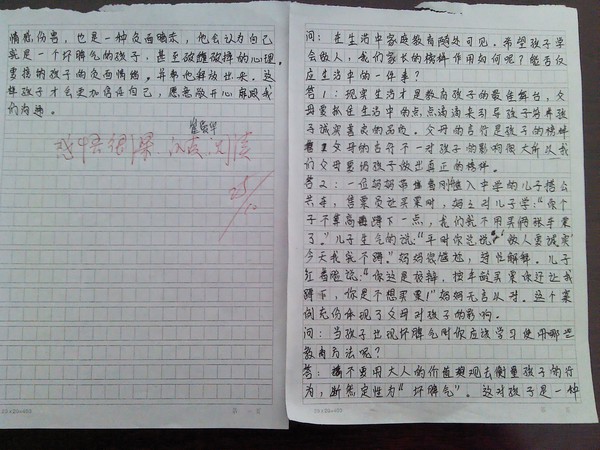 情感伤害，也是一种负面暗示，他会认为自己
就是一个坏脾气的孩子，甚至破罐破摔的心理。
要接纳孩子的负面情绪。并帮他释放出来。这
样孩子才会更加信任自己，愿意敞开心扉跟我
们沟通。
很深
25/12
20×20=400
第 页
问：在生活中家庭教育随处可见。希望孩子学
会做人，我们家长的榜样作用如何呢？能否列
应生活中的一件事？
答1：现实生活才是教育孩子的最佳舞台，父
母要抓住生活中的点点滴滴来引导孩子培养孩
子诚实善良的品质。父母的言行是孩子的榜样
父母的言行不一对孩子的影响很大所以我
们父母要给孩子做出真正的榜样。
答2：一位妈妈带着刚进入中学的儿子搭公
共车，售票员让买票时，妈立对儿子学：“你个
子不算高再蹲下一点，我们就不用买两张车票
了。”儿子生气的说：“平时你还说，做人要诚实
今天我就不蹲。”妈妈很尴尬，特性解释。儿子
红着脸说：“你这是狡辩，按年龄买票你还让我
蹲下，你是不想买票！”妈妈无言以对。这个案
例充份体现了父母对孩子的影响。
问：当孩子出现坏脾气时你应该学习使用哪些
教育方法呢？
答：不要用大人的价值观去衡量孩子的行
为，断然定性为“坏脾气”。这对孩子是一种
20×20=400